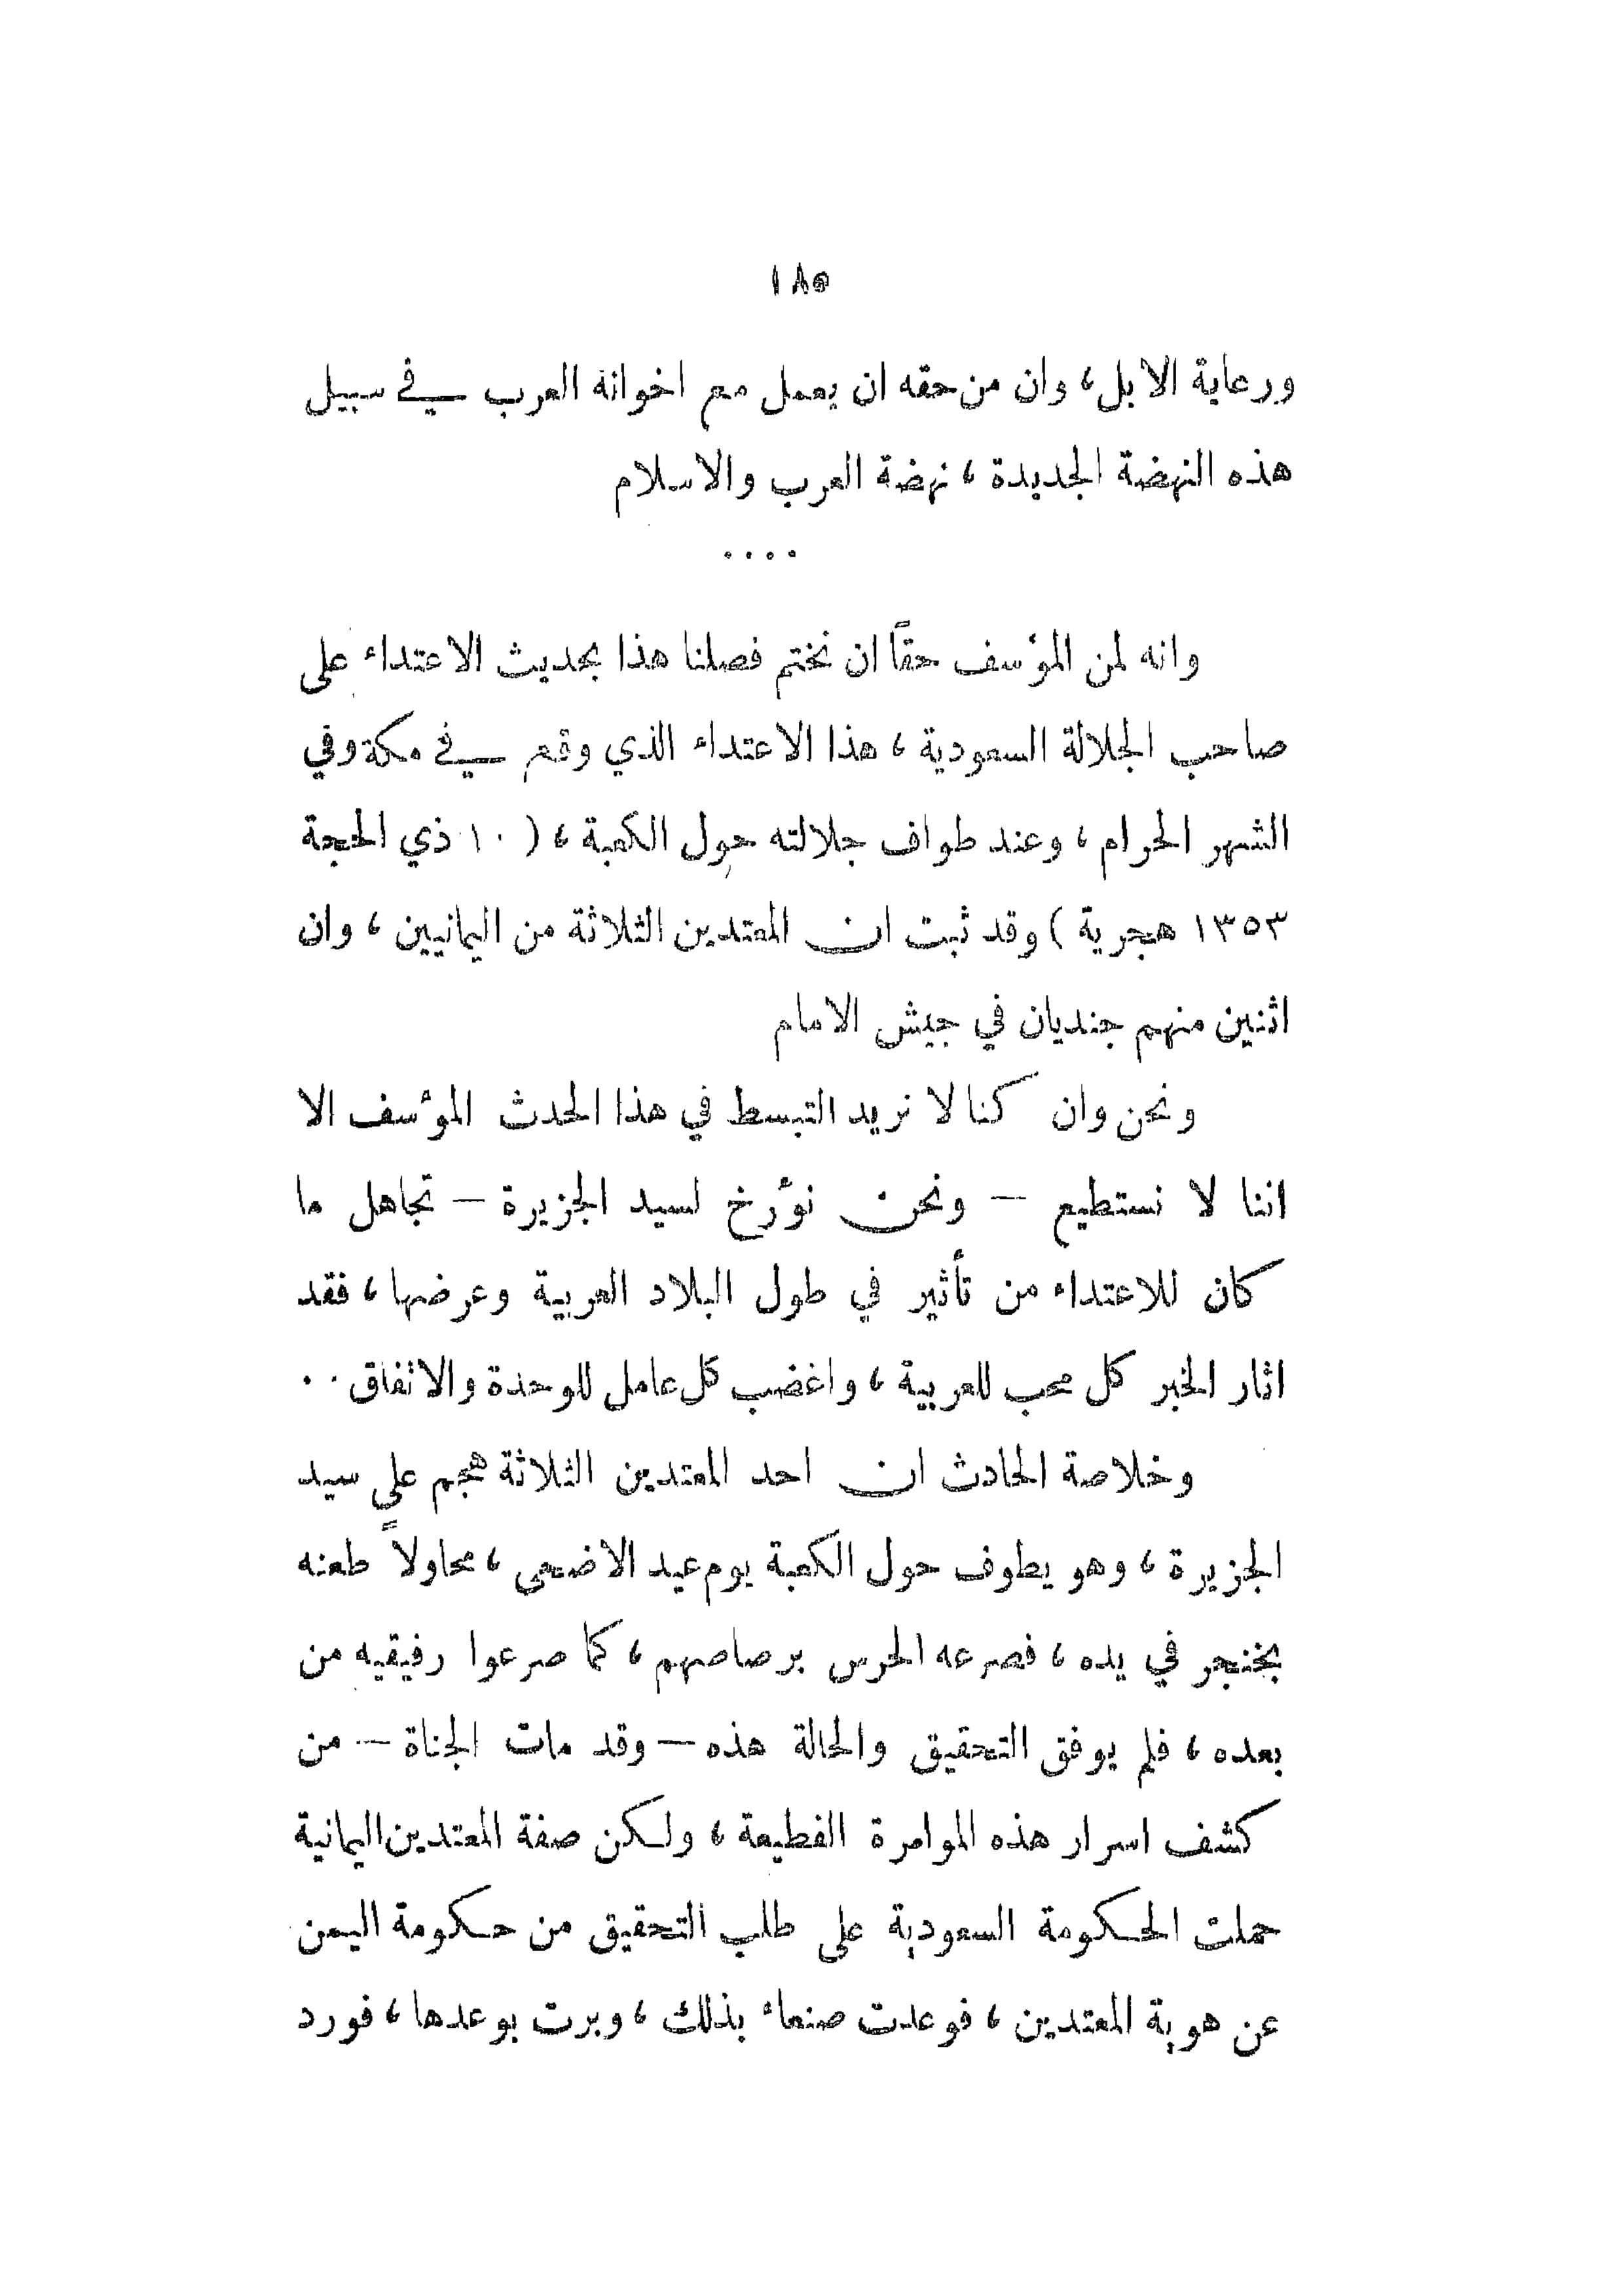 ١٨٥
ورعاية الابل، وان من حقه ان يعمل مع اخوانه العرب في سبيل
هذه النهضة الجديدة، نهضة العرب والاسلام
....
وانه لمن المؤسف حقاً ان نختم فصلنا هذا بحديث الاعتداء على
صاحب الجلالة السعودية، هذا الاعتداء الذي وقع في مكة وفي
الشهر الحرام، وعند طواف جلالته حول الكعبة، (١٠ ذي الحجة
١٣٥٣ هجرية) وقد ثبت ان المعتدين الثلاثة من اليمانيين، وان
اثنين منهم جنديان في جيش الامام
ونحن وان كنا لا نريد التبسط في هذا الحدث المؤسف الا
اننا لا نستطيع — ونحن نؤرخ لسيد الجزيرة — تجاهل ما
كان للاعتداء من تأثير في طول البلاد العربية وعرضها، فقد
اثار الخبر كل محب للعربية، واغضب كل عامل للوحدة والاتفاق..
وخلاصة الحادث ان احد المعتدين الثلاثة هجم على سيد
الجزيرة، وهو يطوف حول الكعبة يوم عيد الاضحى، محاولاً طعنه
بخنجر في يده، فصرعه الحرس برصاصهم، كما صرعوا رفيقيه من
بعده، فلم يوفق التحقيق والحالة هذه — وقد مات الجناة — من
كشف اسرار هذه الموامرة الفظيعة، ولكن صفة المعتدين اليمانية
حملت الحكومة السعودية على طلب التحقيق من حكومة اليمن
عن هوية المعتدين، فوعدت صنعاء بذلك، وبرت بوعدها، فورد